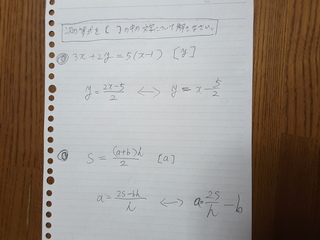 次の等式を[ ]の中の文字について解きなさい。
① 3x+2y=5(x-1) [y]
y=\frac{2x-5}{2} ⟷ y=x-\frac{5}{2}
S=\frac{(a+b)h}{2} [a]
a=\frac{2S-bh}{h} ⟷ a=\frac{2S}{h}-b